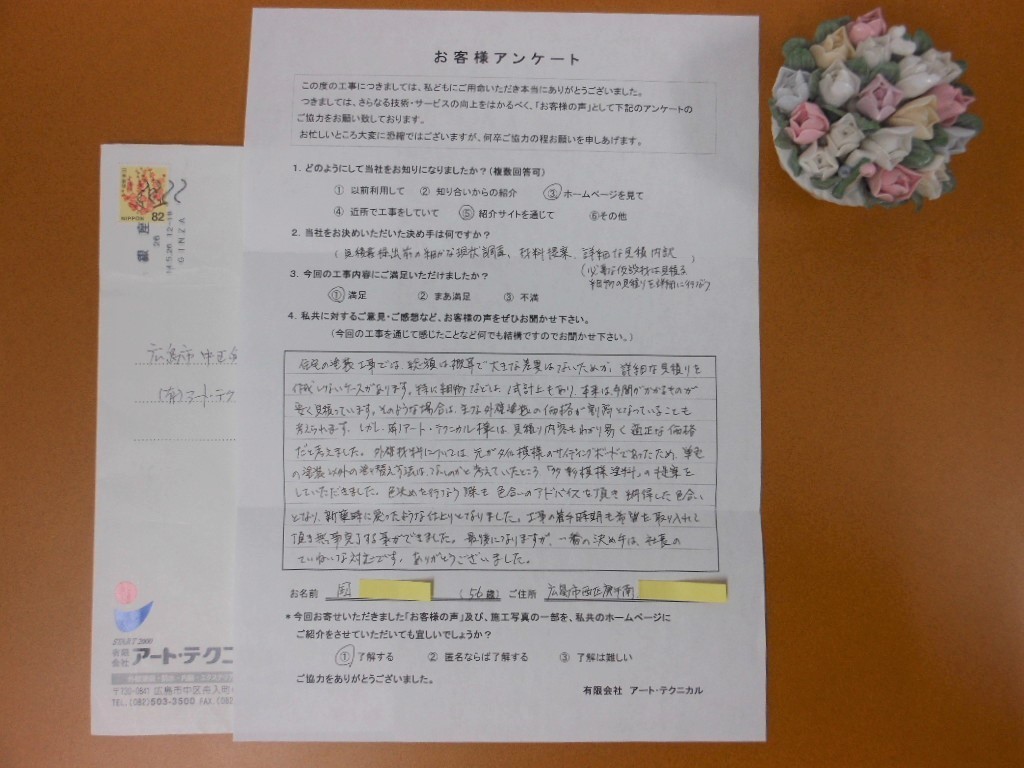 お客様アンケート
この度の工事につきましては、私どもにご用命いただき本当にありがとうございました。
つきましては、さらなる技術・サービスの向上をはかるべく、「お客様の声」として下記のアンケートの
ご協力をお願い致しております。
お忙しいところ大変に恐縮ではございますが、何卒ご協力の程お願いを申しあげます。
1. どのようにして当社をお知りになりましたか?(複数回答可)
① 以前利用して ② 知り合いからの紹介 ③ ホームページを見て
④ 近所で工事をしていて ⑤ 紹介サイトを通じて ⑥その他
2. 当社をお決めいただいた決め手は何ですか?
(見積書提出前の細かな現状調査、材料提案、詳細な見積内訳)
(必要な仮設材は見積る
細物の見積りを詳細に
3. 今回の工事内容にご満足いただけましたか?
① 満足 ② まあ満足 ③ 不満
4. 私共に対するご意見・ご感想など、お客様の声をぜひお聞かせ下さい。
(今回の工事を通じて感じたことなど何でも結構ですのでお聞かせ下さい。)
住宅の塗装工事では、総額は概算で大きな差異はないためか、詳細な見積りを
作成しないケースがあります。特に細物などは、1式計上もあり、本来は手間がかかるものが
安く見積っています。そのような場合は、主な外壁塗装の価格が割高となっていることも
考えられます。しかし、(有)アート・テクニカル様は、見積り内容もわかり易く適正な価格
だと考えました。外壁材料については、元がタイル模様のサイディングボードであったため、単色
の塗装以外の塗り替え方法は、ないものかと考えていたところ「多彩模様塗料」の提案を
していただきました。色決めを行なう際も色合いのアドバイスを頂き納得した色合い
となり、新築時に戻ったような仕上りとなりました。工事の着手時期も希望を取り入れて
頂き無事完了する事ができました。最後になりますが、一番の決め手は、社長の
ていねいな対応です。ありがとうございました。
お名前 (56歳) ご住所 広島市西区庚午南
*今回お寄せいただきました「お客様の声」及び、施工写真の一部を、私共のホームページに
ご紹介をさせていただいても宜しいでしょうか?
① 了解する ② 匿名ならば了解する ③ 了解は難しい
ご協力をありがとうございました。
有限会社 アート・テクニカル
NIPPON 82
銀座
GINZA
広島市中区
(有)アート・テク
START 2000
有限会社 アート・テクニ
〒730-0841 広島市中区舟入町
TEL.(082)503-3500 FAX.(082